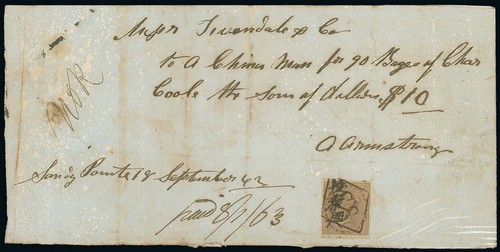 Messrs Tivendale & Co
to A Chines Man for 90 Bages of Char
Coole the Som of Dollers $10
A Armstrong
Sandy Pointe 18 September 62
paid 8/1/63